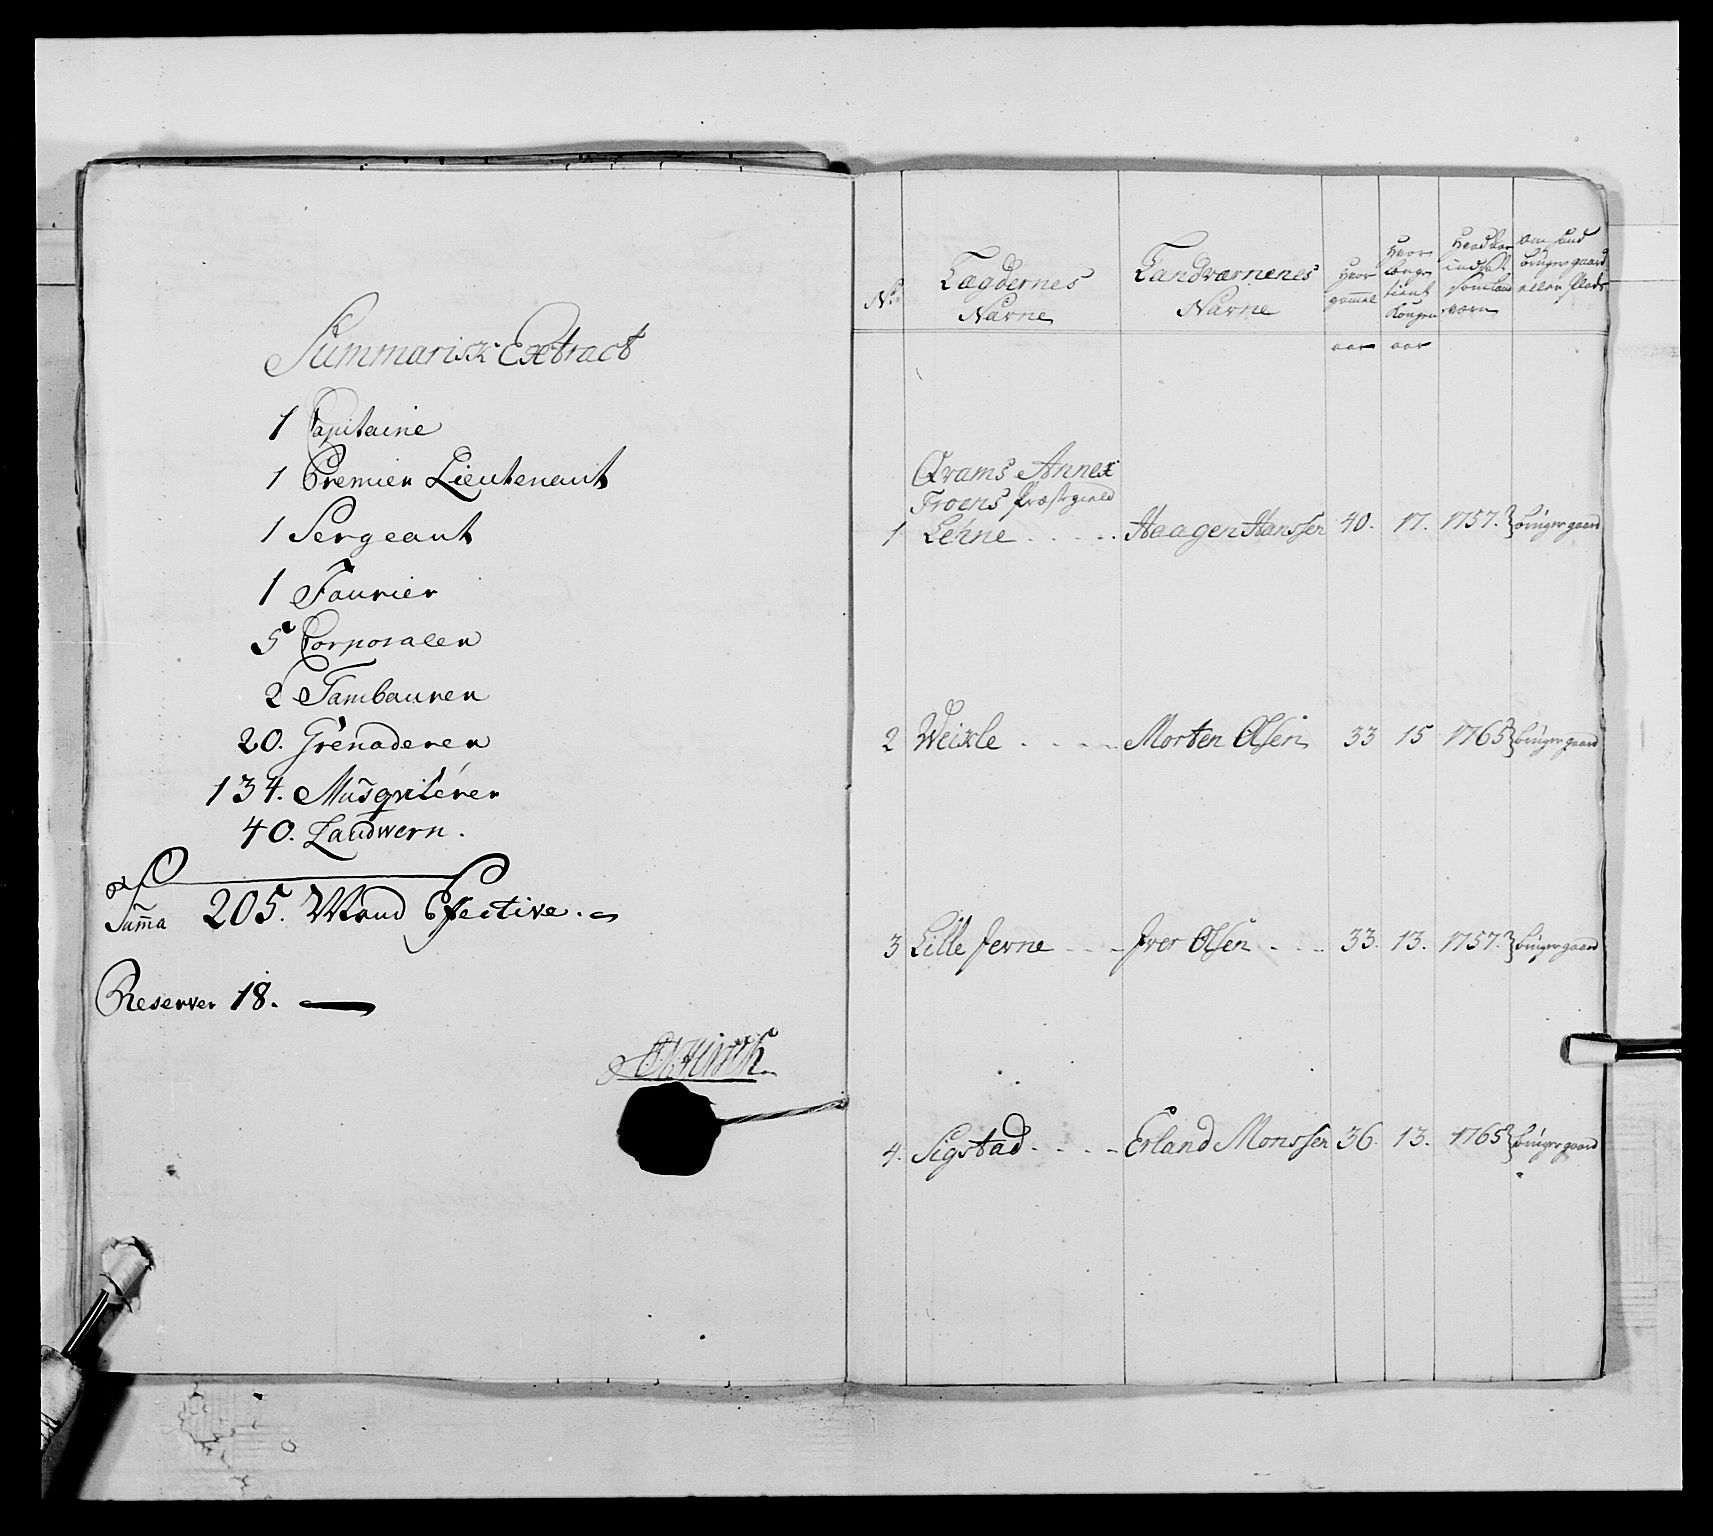 Summarisk Extract
1 Capitaine
1 Premier Lieutenant
1 Sergeant
1 Fourier
5 Corporaler
2 Tambourer
20. Grenaderer
134. Musqvitérer
40. Landwern.
Sum̄a 205. Mand Efective.
Reserver 18.
No. Lægdernes Navne Landværnenes Navne Hvor gammel Hvor længe tient Kongen Hvad Aar indsat som Land værn Om hand bruger gaard eller Plads
aar aar
Qvams Annex
Froens Præstgield
1 Lehne Haagen Hanssen 40. 17. 1757. bruger gaard
2 Weixle Morten Olsen 33 15 1765 bruger gaard
3 Lille Jevne Iver Olsen 33. 13. 1757. bruger gaard
4. Sigstad Erland Monssen 36. 13. 1765 bruger gaard